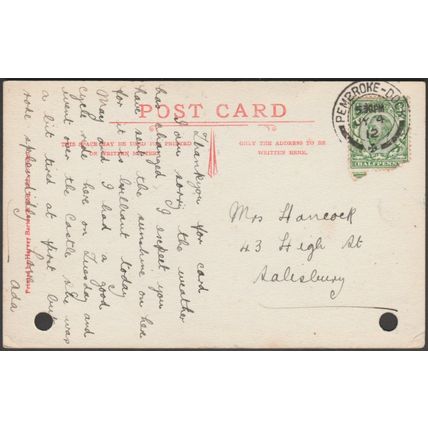 POST CARD
THIS SPACE MAY BE USED FOR PRINTED
OR WRITTEN MATTER.
ONLY THE ADDRESS TO BE
WRITTEN HERE.
PEMBROKE-DOCK
5.30PM
12
HALFPENNY
Mrs Hancock
43 High St
Salisbury
Thankyou for card
I am sorry the weather
has changed, I expect you
have sent the sunshine on here
for it is brilliant today
May and I had a good
cycle ride here on Tuesday and
went over the Castle she was
a bit tired at first but
rode splendidly
Ada